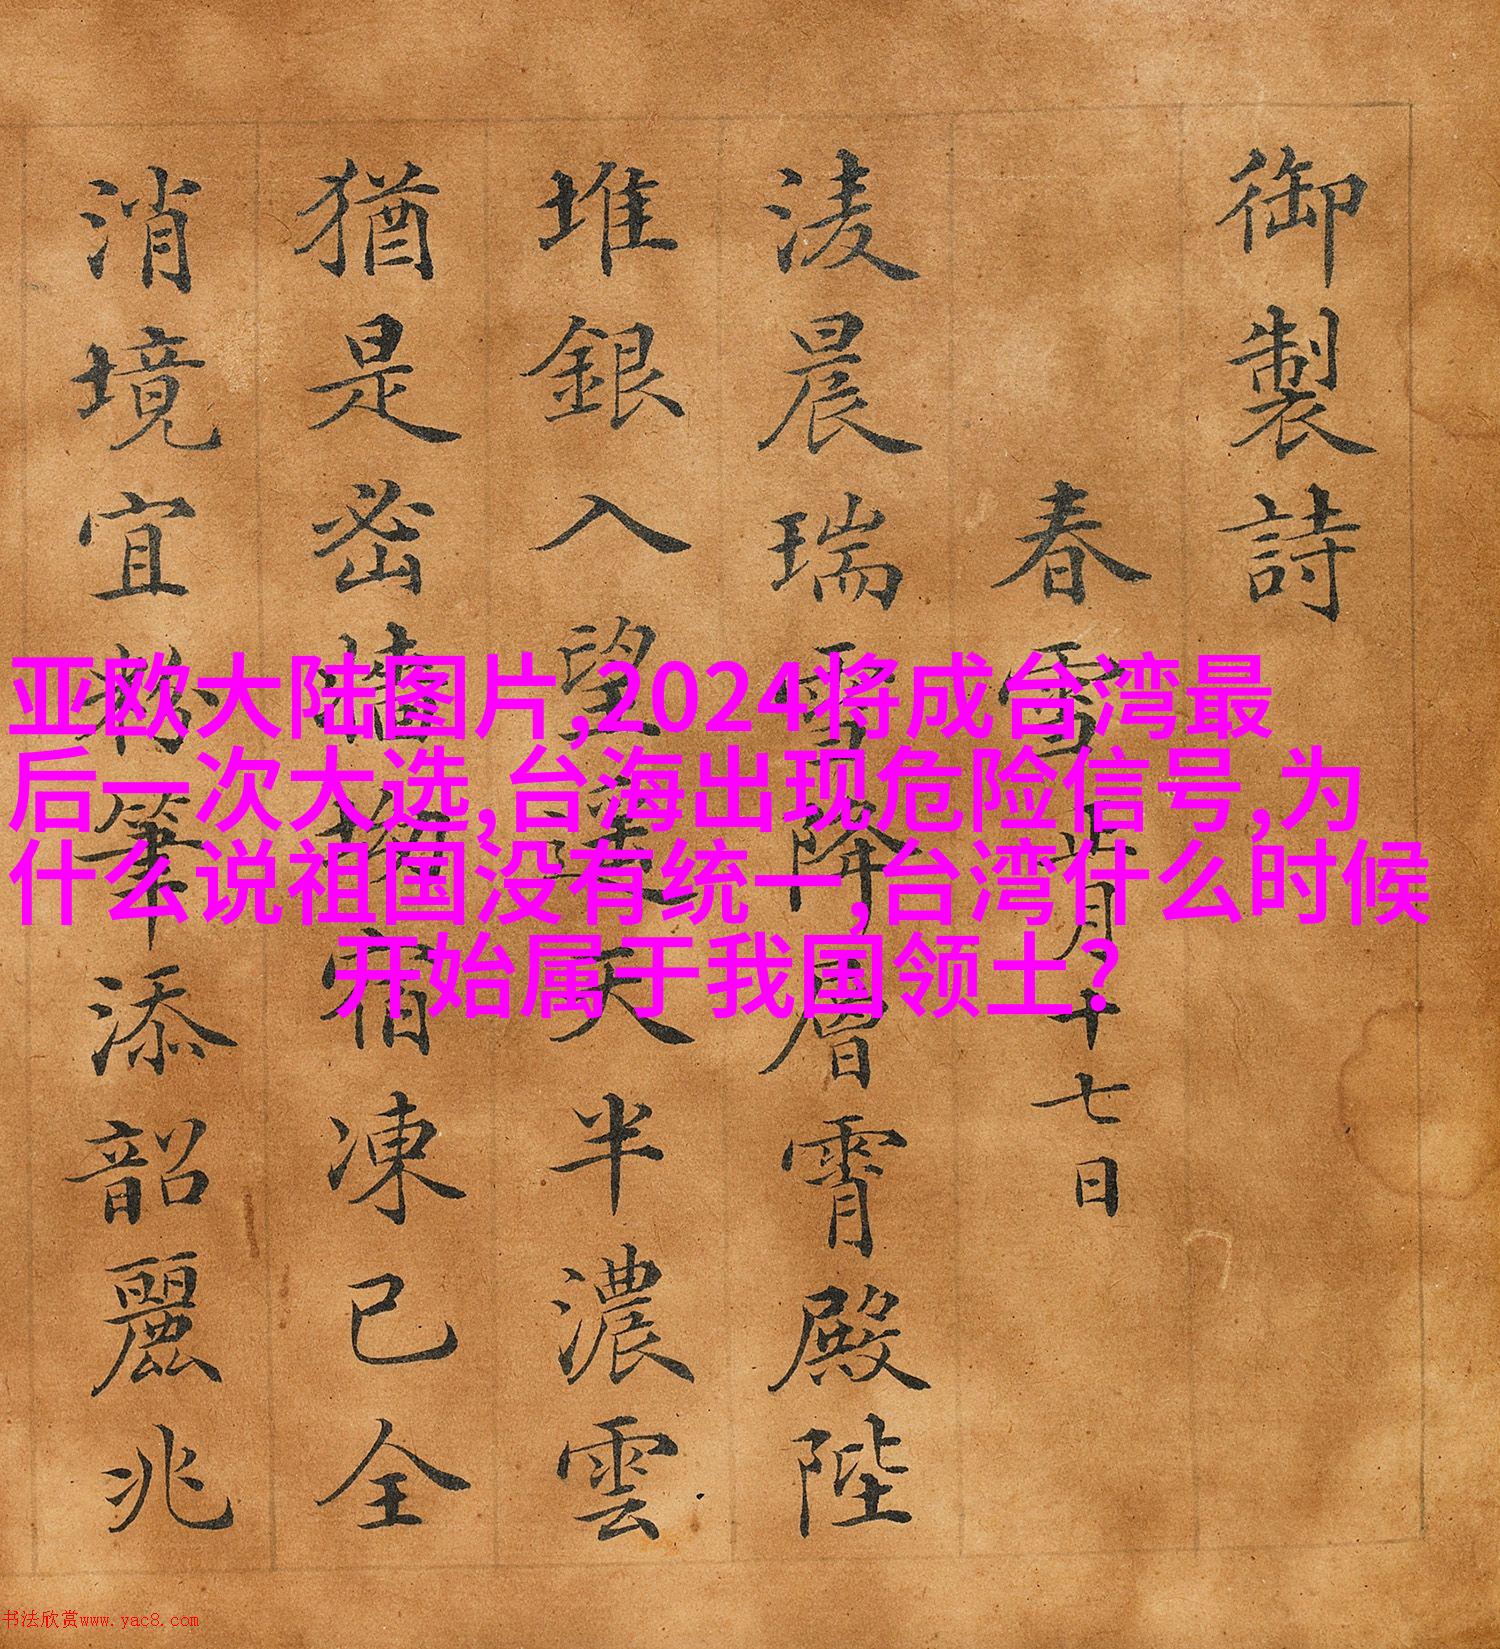 御製詩
春雪 正月十七日
淩晨瑞雪降層霄殿陛
堆銀入望遙天半濃雲
猶是密宿凍已全
消境宜筆添韶麗兆
亚欧大陆图片,2024将成台湾最
后一次大选,台海出现危险信号,为
什么说祖国没有统一,台湾什么时候
开始属于我国领土?
书法欣赏www.yac8.com